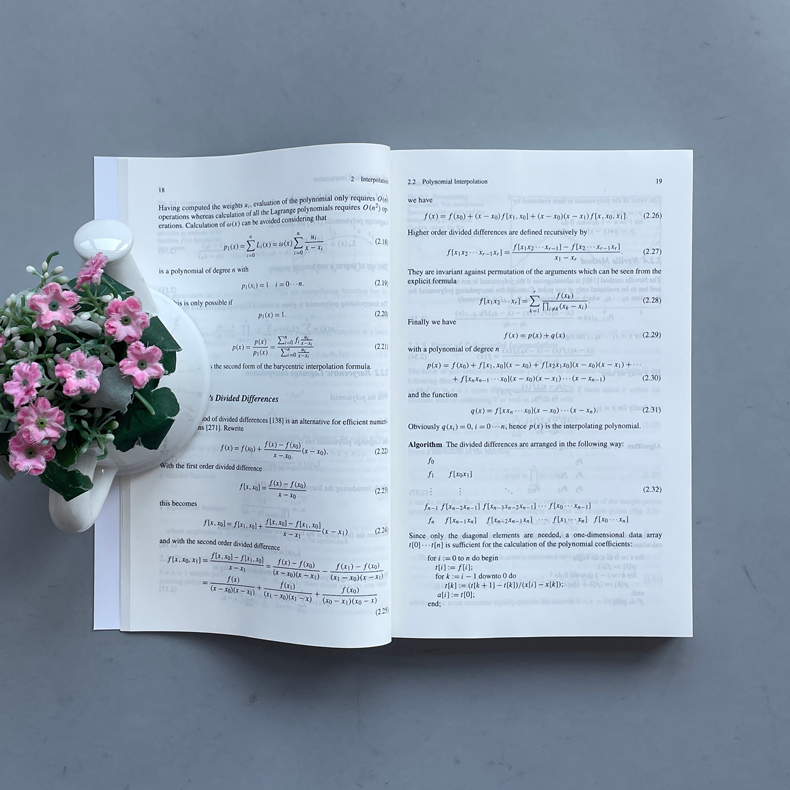 2 Interpolation
18
Having computed the weights u_i, evaluation of the polynomial only requires O(n)
operations whereas calculation of all the Lagrange polynomials requires O(n²) op-
erations. Calculation of ω(x) can be avoided considering that
p₁(x) = ∑_{i=0}^{n} L_i(x) = ω(x) ∑_{i=0}^{n} u_i/(x − x_i) (2.18)
is a polynomial of degree n with
p₁(x_i) = 1 i = 0 ⋯ n. (2.19)
is is only possible if
p₁(x) = 1. (2.20)
p(x) = p(x)/p₁(x) = (∑_{i=0}^{n} f_i u_i/(x − x_i))/(∑_{i=0}^{n} u_i/(x − x_i)) (2.21)
s the second form of the barycentric interpolation formula.
's Divided Differences
od of divided differences [138] is an alternative for efficient numeri-
ns [271]. Rewrite
f(x) = f(x₀) + (f(x) − f(x₀))/(x − x₀) (x − x₀). (2.22)
With the first order divided difference
f[x, x₀] = (f(x) − f(x₀))/(x − x₀) (2.23)
this becomes
f[x, x₀] = f[x₁, x₀] + (f[x, x₀] − f[x₁, x₀])/(x − x₁) (x − x₁) (2.24)
and with the second order divided difference
f[x, x₀, x₁] = (f[x, x₀] − f[x₁, x₀])/(x − x₁) = (f(x) − f(x₀))/((x − x₀)(x − x₁)) − (f(x₁) − f(x₀))/((x₁ − x₀)(x − x₁))
= f(x)/((x − x₀)(x − x₁)) + f(x₁)/((x₁ − x₀)(x₁ − x)) + f(x₀)/((x₀ − x₁)(x₀ − x))
(2.25)
2.2 Polynomial Interpolation 19
we have
f(x) = f(x₀) + (x − x₀) f[x₁, x₀] + (x − x₀)(x − x₁) f[x, x₀, x₁]. (2.26)
Higher order divided differences are defined recursively by
f[x₁x₂ ⋯ x_{r−1}x_r] = (f[x₁x₂ ⋯ x_{r−1}] − f[x₂ ⋯ x_{r−1}x_r])/(x₁ − x_r) (2.27)
They are invariant against permutation of the arguments which can be seen from the
explicit formula
f[x₁x₂ ⋯ x_r] = ∑_{k=1}^{r} f(x_k)/∏_{i≠k}(x_k − x_i). (2.28)
Finally we have
f(x) = p(x) + q(x) (2.29)
with a polynomial of degree n
p(x) = f(x₀) + f[x₁, x₀](x − x₀) + f[x₂x₁x₀](x − x₀)(x − x₁) + ⋯
+ f[x_n x_{n−1} ⋯ x₀](x − x₀)(x − x₁) ⋯ (x − x_{n−1}) (2.30)
and the function
q(x) = f[x x_n ⋯ x₀](x − x₀) ⋯ (x − x_n). (2.31)
Obviously q(x_i) = 0, i = 0 ⋯ n, hence p(x) is the interpolating polynomial.
Algorithm The divided differences are arranged in the following way:
f₀
f₁ f[x₀x₁]
⋮ ⋮ ⋱ (2.32)
f_{n−1} f[x_{n−2}x_{n−1}] f[x_{n−3}x_{n−2}x_{n−1}] ⋯ f[x₀ ⋯ x_{n−1}]
f_n f[x_{n−1}x_n] f[x_{n−2}x_{n−1}x_n] ⋯ f[x₁ ⋯ x_n] f[x₀ ⋯ x_n]
Since only the diagonal elements are needed, a one-dimensional data array
t[0] ⋯ t[n] is sufficient for the calculation of the polynomial coefficients:
for i := 0 to n do begin
t[i] := f[i];
for k := i − 1 downto 0 do
t[k] := (t[k + 1] − t[k])/(x[i] − x[k]);
a[i] := t[0];
end;